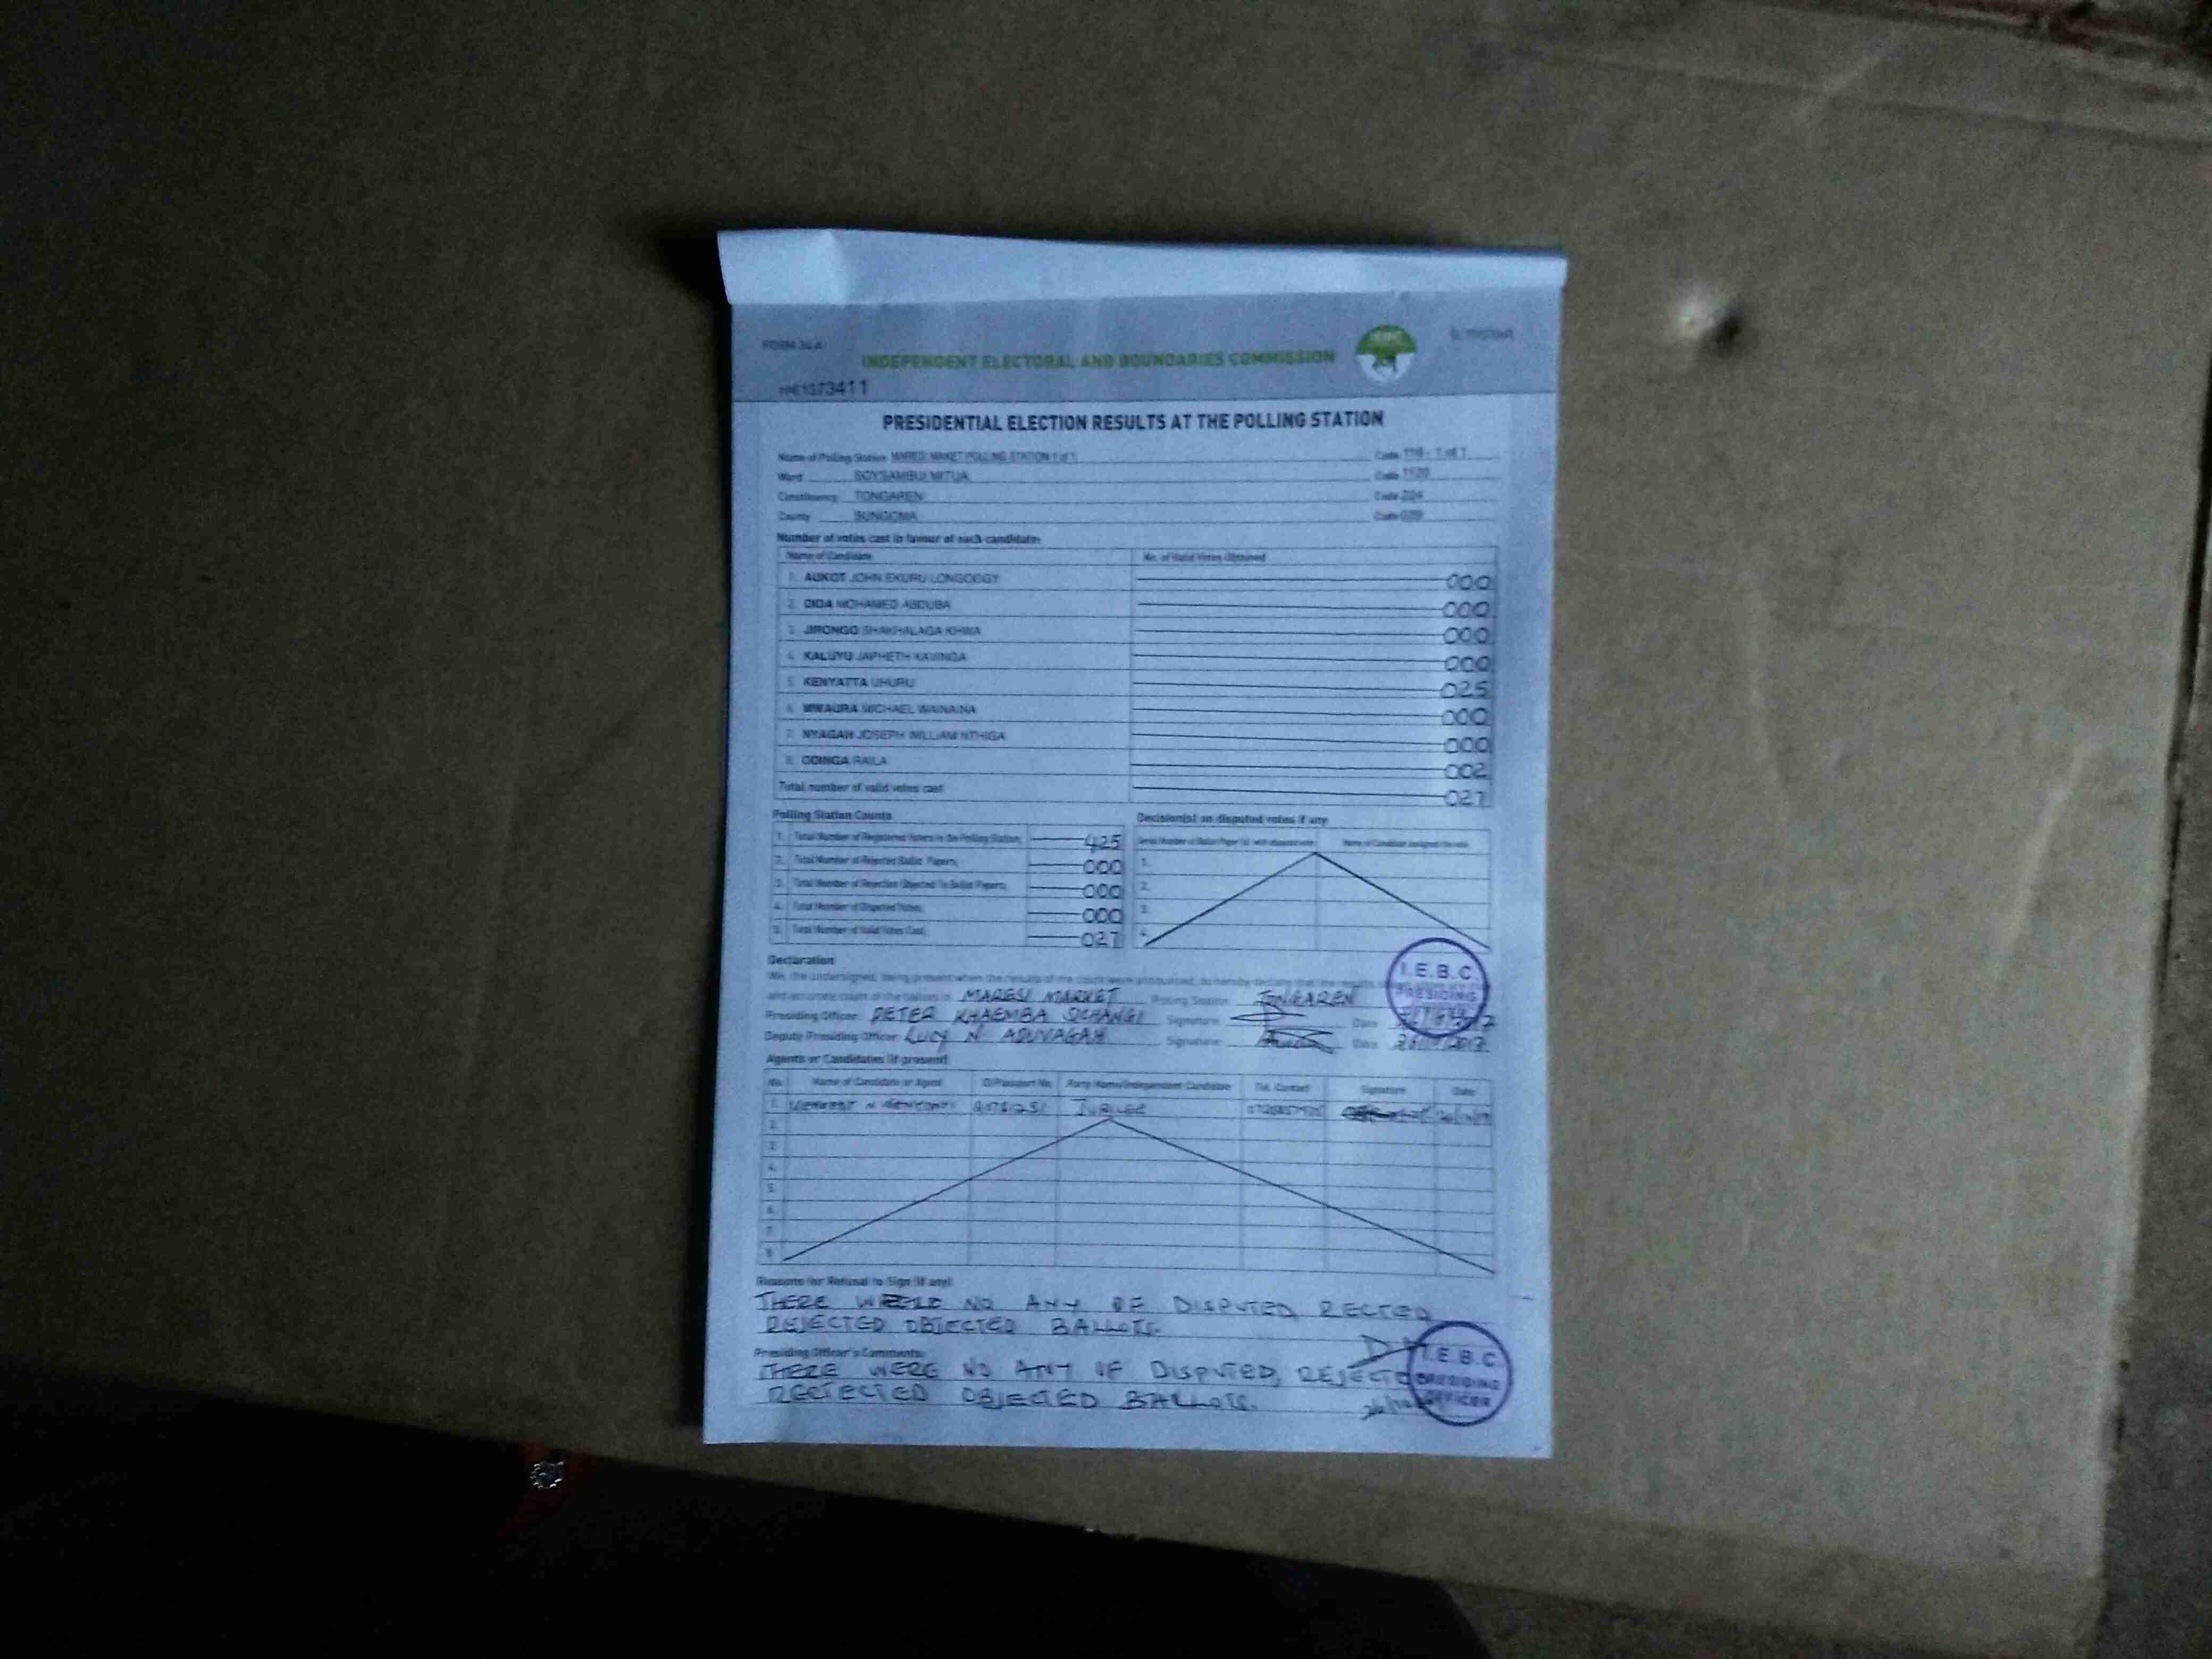 FORM 34A
INDEPENDENT ELECTORAL AND BOUNDARIES COMMISSION
IEBC
73411
PRESIDENTIAL ELECTION RESULTS AT THE POLLING STATION
Name of Polling Station MARESI MAKET POLLING STATION 1 of 1 Code 1 of 1
Ward SOYSAMBU/MITUA Code
Constituency TONGAREN Code
County BUNGOMA Code 039
Number of votes cast in favour of each candidate:
Name of Candidate No. of Valid Votes Obtained
1. AUKOT JOHN EKURU LONGOGGY 000
2. DIDA MOHAMED ABDUBA 000
3. JIRONGO SHAKHALAGA KHWA 000
4. KALUYU JAPHETH KAVINGA 000
5. KENYATTA UHURU 025
6. MWAURA MICHAEL WAINAINA 000
7. NYAGAH JOSEPH WILLIAM NTHIGA 000
8. ODINGA RAILA 002
Total number of valid votes cast 027
Polling Station Counts
1. Total Number of Registered Voters in the Polling Station 425
2. Total Number of Rejected Ballot Papers 000
3. Total Number of Rejection Objected To Ballot Papers 000
4. Total Number of Disputed Votes 000
5. Total Number of Valid Votes Cast 027
Decision(s) on disputed votes if any
Serial Number of Ballot Paper (s) with disputed vote Name of Candidate assigned the vote
1.
2.
3.
4.
Declaration
We, the undersigned, being present when the results of the count were announced, do hereby declare that the results
and accurate count of the ballots in MARESI MARKET Polling Station TONGAREN
Presiding Officer PETER KHAEMBA SICHANGI Signature Date
Deputy Presiding Officer LUCY N ADUVAGAH Signature Date
I.E.B.C.
PRESIDING
Agents or Candidates (if present)
No. Name of Candidate or Agent ID/Passport No. Party Name/Independent Candidate Tel. Contact Signature Date
1. JUBILEE
2.
3.
4.
5.
6.
7.
8.
Reasons for Refusal to Sign (if any)
THERE NO ANY OF DISPUTED, RECTED
REJECTED OBJECTED BALLOTS.
Presiding Officer's Comments:
THERE WERE NO ANY OF DISPUTED, REJECTED
REJECTED OBJECTED BALLOTS.
I.E.B.C.
PRESIDING
OFFICER